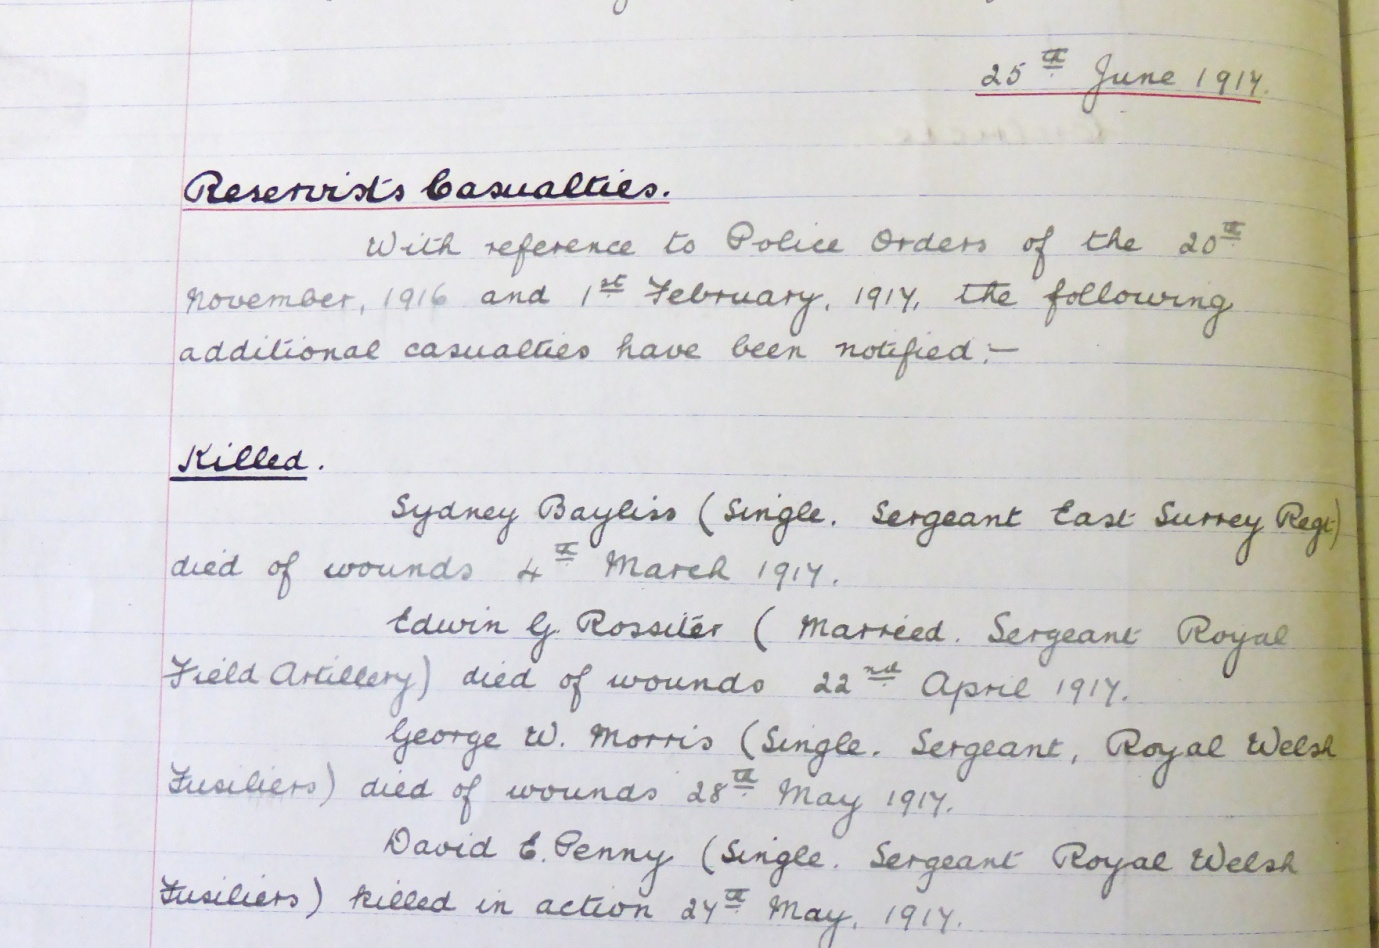 25th June 1917.
Reservists Casualties.
With reference to Police Orders of the 20th
November, 1916 and 1st February, 1917, the following
additional casualties have been notified:—
Killed.
Sydney Bayliss (Single. Sergeant East Surrey Regt)
died of wounds 4th March 1917.
Edwin G. Rossiter (Married. Sergeant Royal
Field Artillery) died of wounds 22nd April 1917.
George W. Morris (Single. Sergeant, Royal Welsh
Fusiliers) died of wounds 28th May 1917.
David E. Penny (Single. Sergeant Royal Welsh
Fusiliers) killed in action 27th May, 1917.